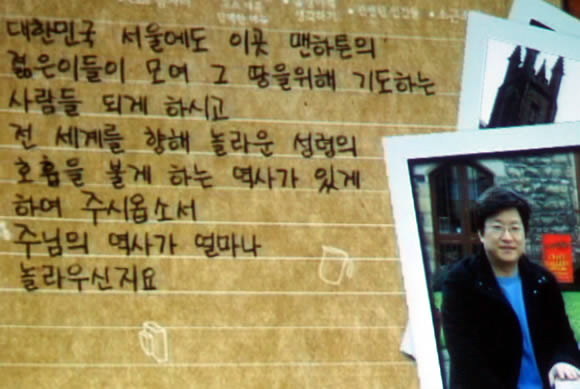 대한민국 서울에도 이곳 맨하튼의
젊은이들이 모여 그 땅을위해 기도하는
사람들 되게 하시고
전 세계를 향해 놀라운 성령의
호흡을 불게 하는 역사가 있게
하여 주시옵소서
주님의 역사가 얼마나
놀라우신지요